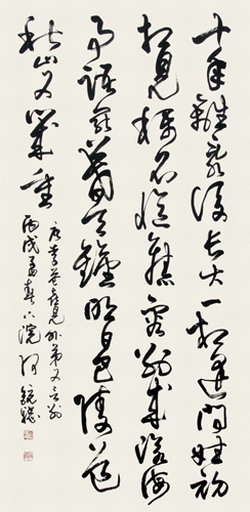 十年離亂後長大一相逢問姓初
相見稱名憶舊容別來滄海
事語罷暮天鐘明日巴陵道
秋山又幾重
唐李益喜見外弟又言別
丙戌孟春下浣